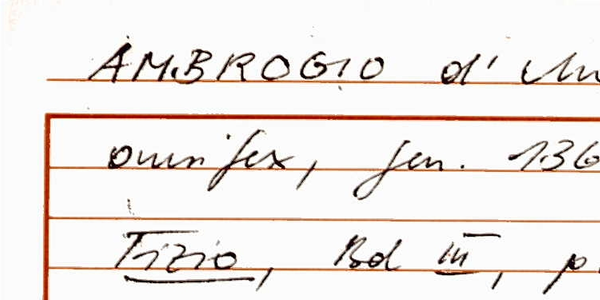 AMBROGIO d'
aurifex, sen. 136
Tizio, Bd III, p.